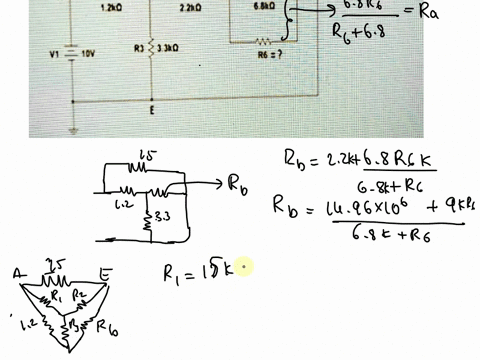 1.2kΩ 2.2kΩ 6.8kΩ
6.8R6 / R6+6.8 = Ra
V1 10V R3 3.3kΩ R6 = ?
E
1.5
1.2 Rb
3.3
Rb = 2.2k + 6.8R6K / 6.8k+R6
Rb = 14.96×10^6 + 9kR6 / 6.8k + R6
A E
R1 R2
1.2 Rb
R1 = 15k